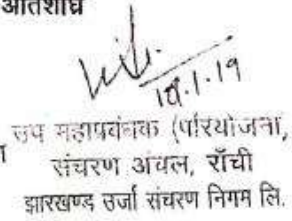 अतिशीघ्र
10.1.19
उप महाप्रबंधक (परियोजना,
संचरण अंचल, राँची
झारखण्ड उर्जा संचरण निगम लि.